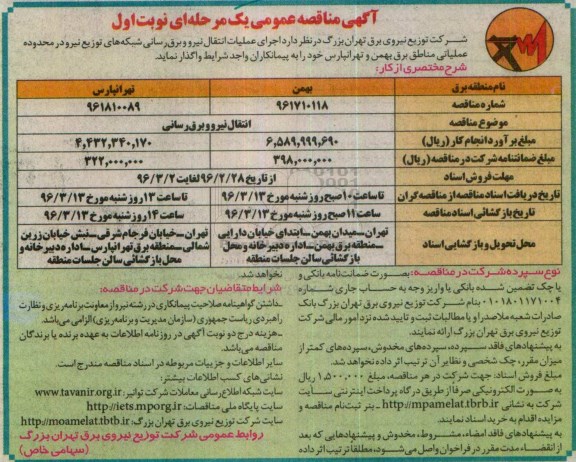 آگهی مناقصه عمومی یک مرحله‌ای نوبت اول
شرکت توزیع نیروی برق تهران بزرگ در نظر دارد اجرای عملیات انتقال نیرو و برق رسانی شبکه‌های توزیع نیرو در محدوده
عملیاتی مناطق برق بهمن و تهرانپارس خود را به پیمانکاران واجد شرایط واگذار نماید.
شرح مختصری از کار:
نام منطقه برق بهمن تهرانپارس
شماره مناقصه ۹۶۱۷۱۰۱۱۸ ۹۶۱۸۱۰۰۸۹
موضوع مناقصه انتقال نیرو و برق رسانی
مبلغ برآورد انجام کار (ریال) ۶,۵۸۹,۹۹۹,۶۹۰ ۴,۴۳۲,۳۴۰,۱۷۰
مبلغ ضمانتنامه شرکت در مناقصه (ریال) ۳۹۸,۰۰۰,۰۰۰ ۳۲۲,۰۰۰,۰۰۰
مهلت فروش اسناد از تاریخ ۹۶/۲/۲۸ لغایت ۹۶/۳/۲
تاریخ دریافت اسناد مناقصه از مناقصه گران تا ساعت ۱۰ صبح روز شنبه مورخ ۹۶/۳/۱۳ تا ساعت ۱۳ روز شنبه مورخ ۹۶/۳/۱۳
تاریخ بازگشائی اسناد مناقصه ساعت ۱۱ صبح روز شنبه مورخ ۹۶/۳/۱۳ ساعت ۱۴ روز شنبه مورخ ۹۶/۳/۱۳
محل تحویل و بازگشایی اسناد
تهران ـ میدان بهمن ـ ابتدای خیابان دارایی
ـ منطقه برق بهمن ـ اداره دبیرخانه و محل
بازگشائی سالن جلسات منطقه
تهران ـ خیابان فرجام شرقی ـ نبش خیابان زرین
شمالی ـ منطقه برق تهرانپارس ـ اداره دبیرخانه و
محل بازگشائی سالن جلسات منطقه
نوع سپرده شرکت در مناقصه: بصورت ضمانت نامه بانکی و
یا چک تضمین شده بانکی یا واریز وجه به حساب جاری شماره
۰۱۰۱۸۰۱۱۷۱۰۰۴ بنام شرکت توزیع نیروی برق تهران بزرگ بانک
صادرات شعبه ملاصدرا و یا مطالبات ثبت و تایید شده نزد امور مالی شرکت
توزیع نیروی برق تهران بزرگ ارائه نمایند.
به پیشنهادهای فاقد سپرده، سپرده‌های مخدوش، سپرده‌های کمتر از
میزان مقرر، چک شخصی و نظایر آن ترتیب اثر داده نخواهد شد.
مبلغ فروش اسناد: جهت شرکت در هر مناقصه، مبلغ ۱,۵۰۰,۰۰۰ ریال
به صورت الکترونیکی صرفا از طریق درگاه پرداخت اینترنتی سایت
شرکت به نشانی http://mpamelat.tbrb.ir ـ بنر ثبت‌نام مناقصه و
مزایده اقدام به خرید اسناد نمایند.
به پیشنهادهای فاقد امضاء، مشروط، مخدوش و پیشنهادهایی که بعد
از انقضاء مدت مقرر در فراخوان واصل می‌شود، مطلقا ترتیب اثر داده
نخواهد شد.
شرایط متقاضیان جهت شرکت در مناقصه:
ـ داشتن گواهینامه صلاحیت پیمانکاری در رشته نیرو از معاونت برنامه ریزی و نظارت
راهبردی ریاست جمهوری (سازمان مدیریت و برنامه‌ریزی) الزامی می‌باشد.
ـ هزینه درج دو نوبت آگهی در روزنامه اطلاعات به عهده برنده یا برندگان
مناقصه می‌باشد.
سایر اطلاعات و جزییات مربوطه در اسناد مناقصه مندرج است.
نشانی‌های کسب اطلاعات بیشتر:
سایت شبکه اطلاع رسانی معاملات شرکت توانیر: www.tavanir.org.ir
سایت پایگاه ملی مناقصات: http://iets.mporg.ir
سایت شرکت توزیع نیروی برق تهران بزرگ: http://moamelat.tbtb.ir
روابط عمومی شرکت توزیع نیروی برق تهران بزرگ
(سهامی خاص)